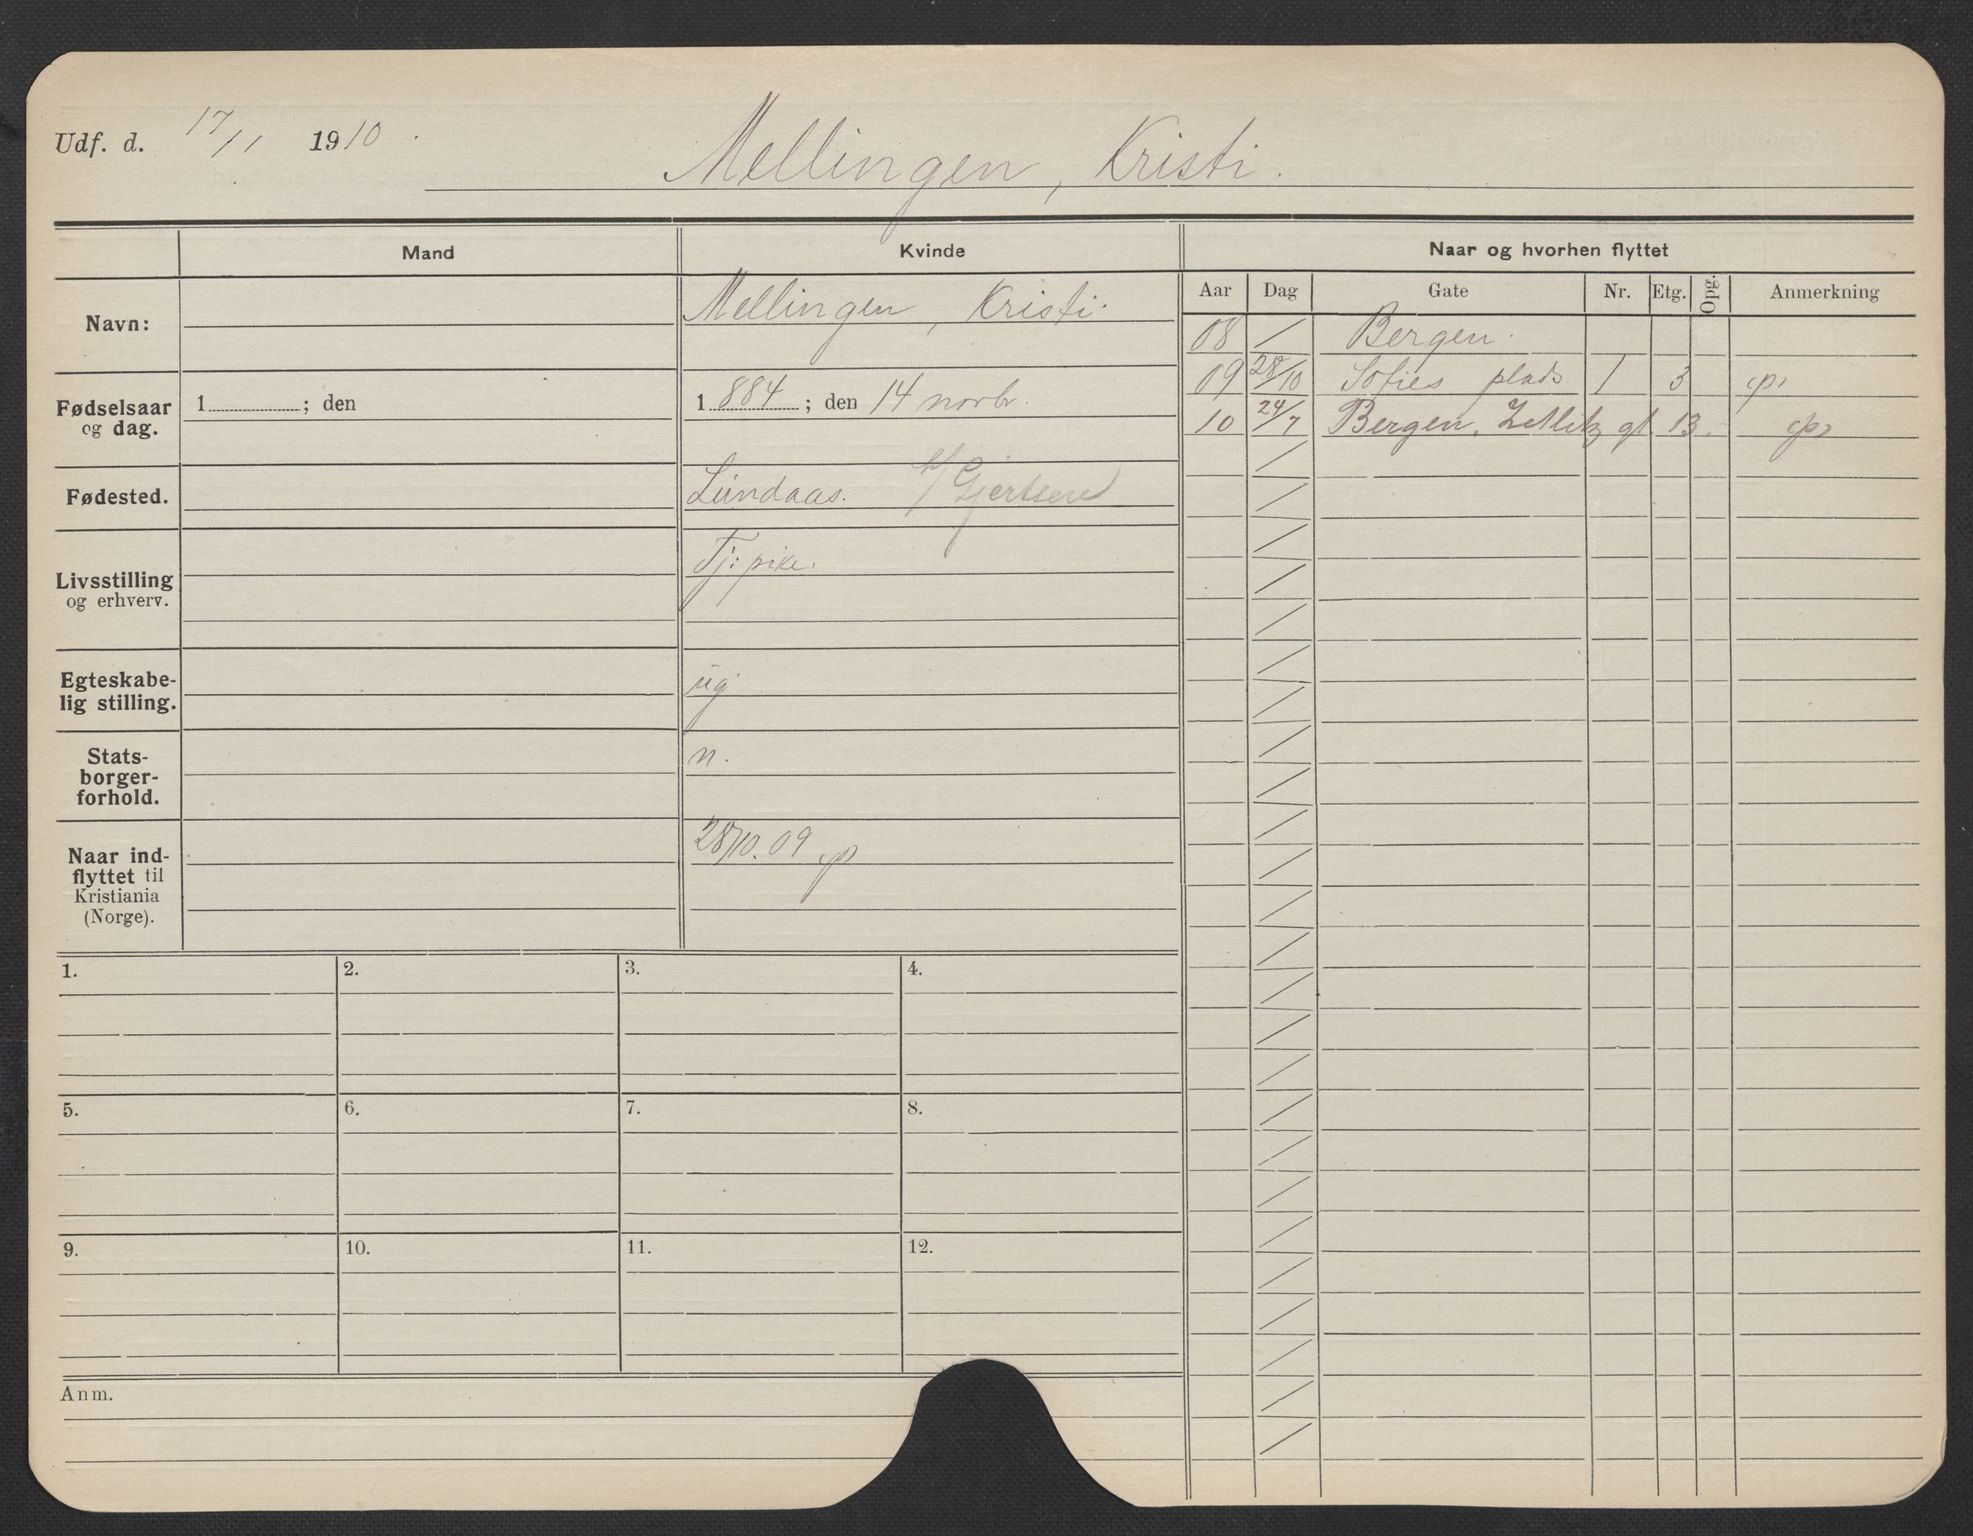 Udf. d. 17/11 1910.
Mellingen, Kristi.
Mand
Kvinde
Naar og hvorhen flyttet
Aar Dag Gate Nr. Etg. Opg. Anmerkning
Navn:
Mellingen, Kristi.
08 / Bergen.
09 28/10 Sofies plads 1 3 cp,
10 24/7 Bergen, Zetlitz gt 13.
Fødselsaar
og dag.
1 ; den
1 884 ; den 14 novbr.
Fødested.
Lindaas. b/ Gjertsen
Livsstilling
og erhverv.
Tj: pike.
Egteskabe-
lig stilling.
ug
Stats-
borger-
forhold.
n.
Naar ind-
flyttet til
Kristiania
(Norge).
28/10. 09
1. 2. 3. 4.
5. 6. 7. 8.
9. 10. 11. 12.
Anm.